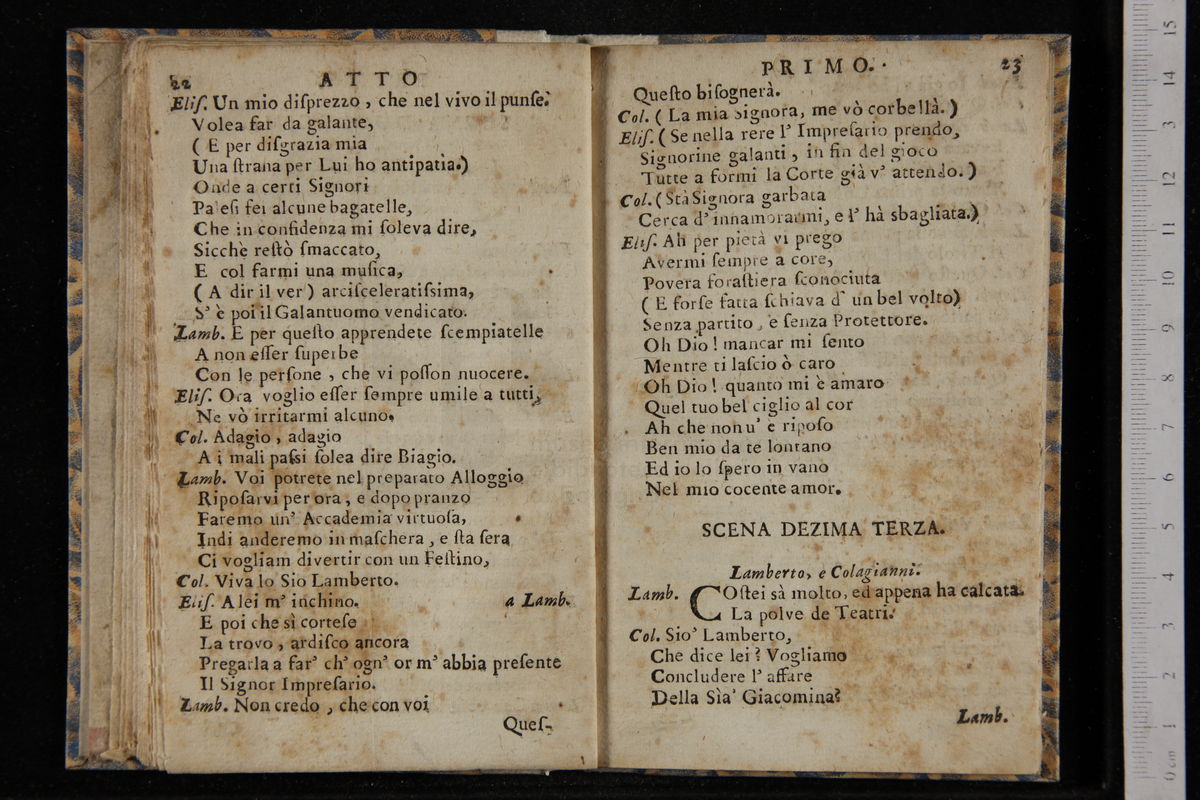 22 ATTO
Eliſ. Un mio diſprezzo , che nel vivo il punſe.
Volea far da galante,
( E per diſgrazia mia
Una ſtrana per Lui ho antipatia.)
Onde a certi Signori
Paeſi fei alcune bagatelle,
Che in confidenza mi ſoleva dire,
Sicchè reſtò ſmaccato,
E col farmi una muſica,
( A dir il ver ) arciſceleratiſsima,
S' è poi il Galantuomo vendicato.
Lamb. E per queſto apprendete ſcempiatelle
A non eſſer ſuperbe
Con le perſone , che vi poſſon nuocere.
Eliſ. Ora voglio eſſer ſempre umile a tutti,
Ne vò irritarmi alcuno.
Col. Adagio , adagio
A i mali paſsi ſolea dire Biagio.
Lamb. Voi potrete nel preparato Alloggio
Ripoſarvi per ora , e dopo pranzo
Faremo un' Accademia virtuoſa,
Indi anderemo in maſchera , e ſta ſera
Ci vogliam divertir con un Feſtino,
Col. Viva lo Sio Lamberto.
Eliſ. A lei m' inchino. a Lamb.
E poi che sì corteſe
La trovo , ardiſco ancora
Pregarla a far' ch' ogn' or m' abbia preſente
Il Signor Impreſario.
Lamb. Non credo , che con voi
Queſ-
PRIMO. 23
Queſto biſognerà.
Col. ( La mia Signora, me vò corbellà. )
Eliſ. ( Se nella rere l' Impreſario prendo,
Signorine galanti , in fin del gioco
Tutte a formi la Corte già v' attendo. )
Col. ( Stà Signora garbata
Cerca d' innamorarmi, e l' hà sbagliata.)
Eliſ. Ah per pietà vi prego
Avermi ſempre a core,
Povera foraſtiera ſconociuta
( E forſe fatta ſchiava d' un bel volto)
Senza partito , e ſenza Protettore.
Oh Dio ! mancar mi ſento
Mentre ti laſcio ò caro
Oh Dio ! quanto mi è amaro
Quel tuo bel ciglio al cor
Ah che non u' è ripoſo
Ben mio da te lontano
Ed io lo ſpero in vano
Nel mio cocente amor.
SCENA DEZIMA TERZA.
Lamberto, e Colagianni.
Lamb. COſtei sà molto, ed appena ha calcata
La polve de Teatri.
Col. Sio' Lamberto,
Che dice lei ? Vogliamo
Concludere l' affare
Della Sìa' Giacomina?
Lamb.